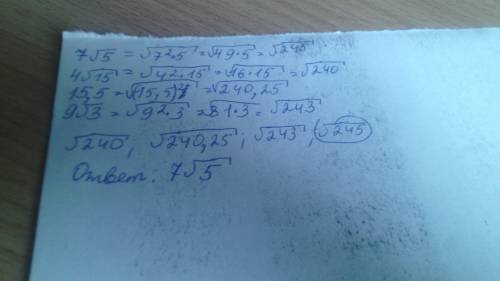 7√5 = √7²·5 = √49·5 = √245
4√15 = √4²·15 = √16·15 = √240
15,5 = √(15,5)² = √240,25
9√3 = √9²·3 = √81·3 = √243
√240, √240,25; √243, √245
Ответ: 7√5